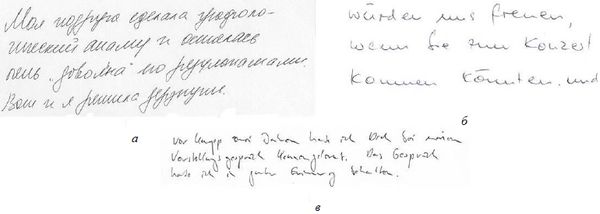 Моя подруга сделала графоло-
гический анализ и осталась
"довольна" его результатами.
Вот и я решила
а
würden uns freuen,
wenn Sie zum Konzert
kommen könnten. und
б
vor knapp zwei Jahren habe ich bei
Vorstellungsgespräch kennengelernt. Das Gespräch
habe ich in guter Erinnerung behalten.
в